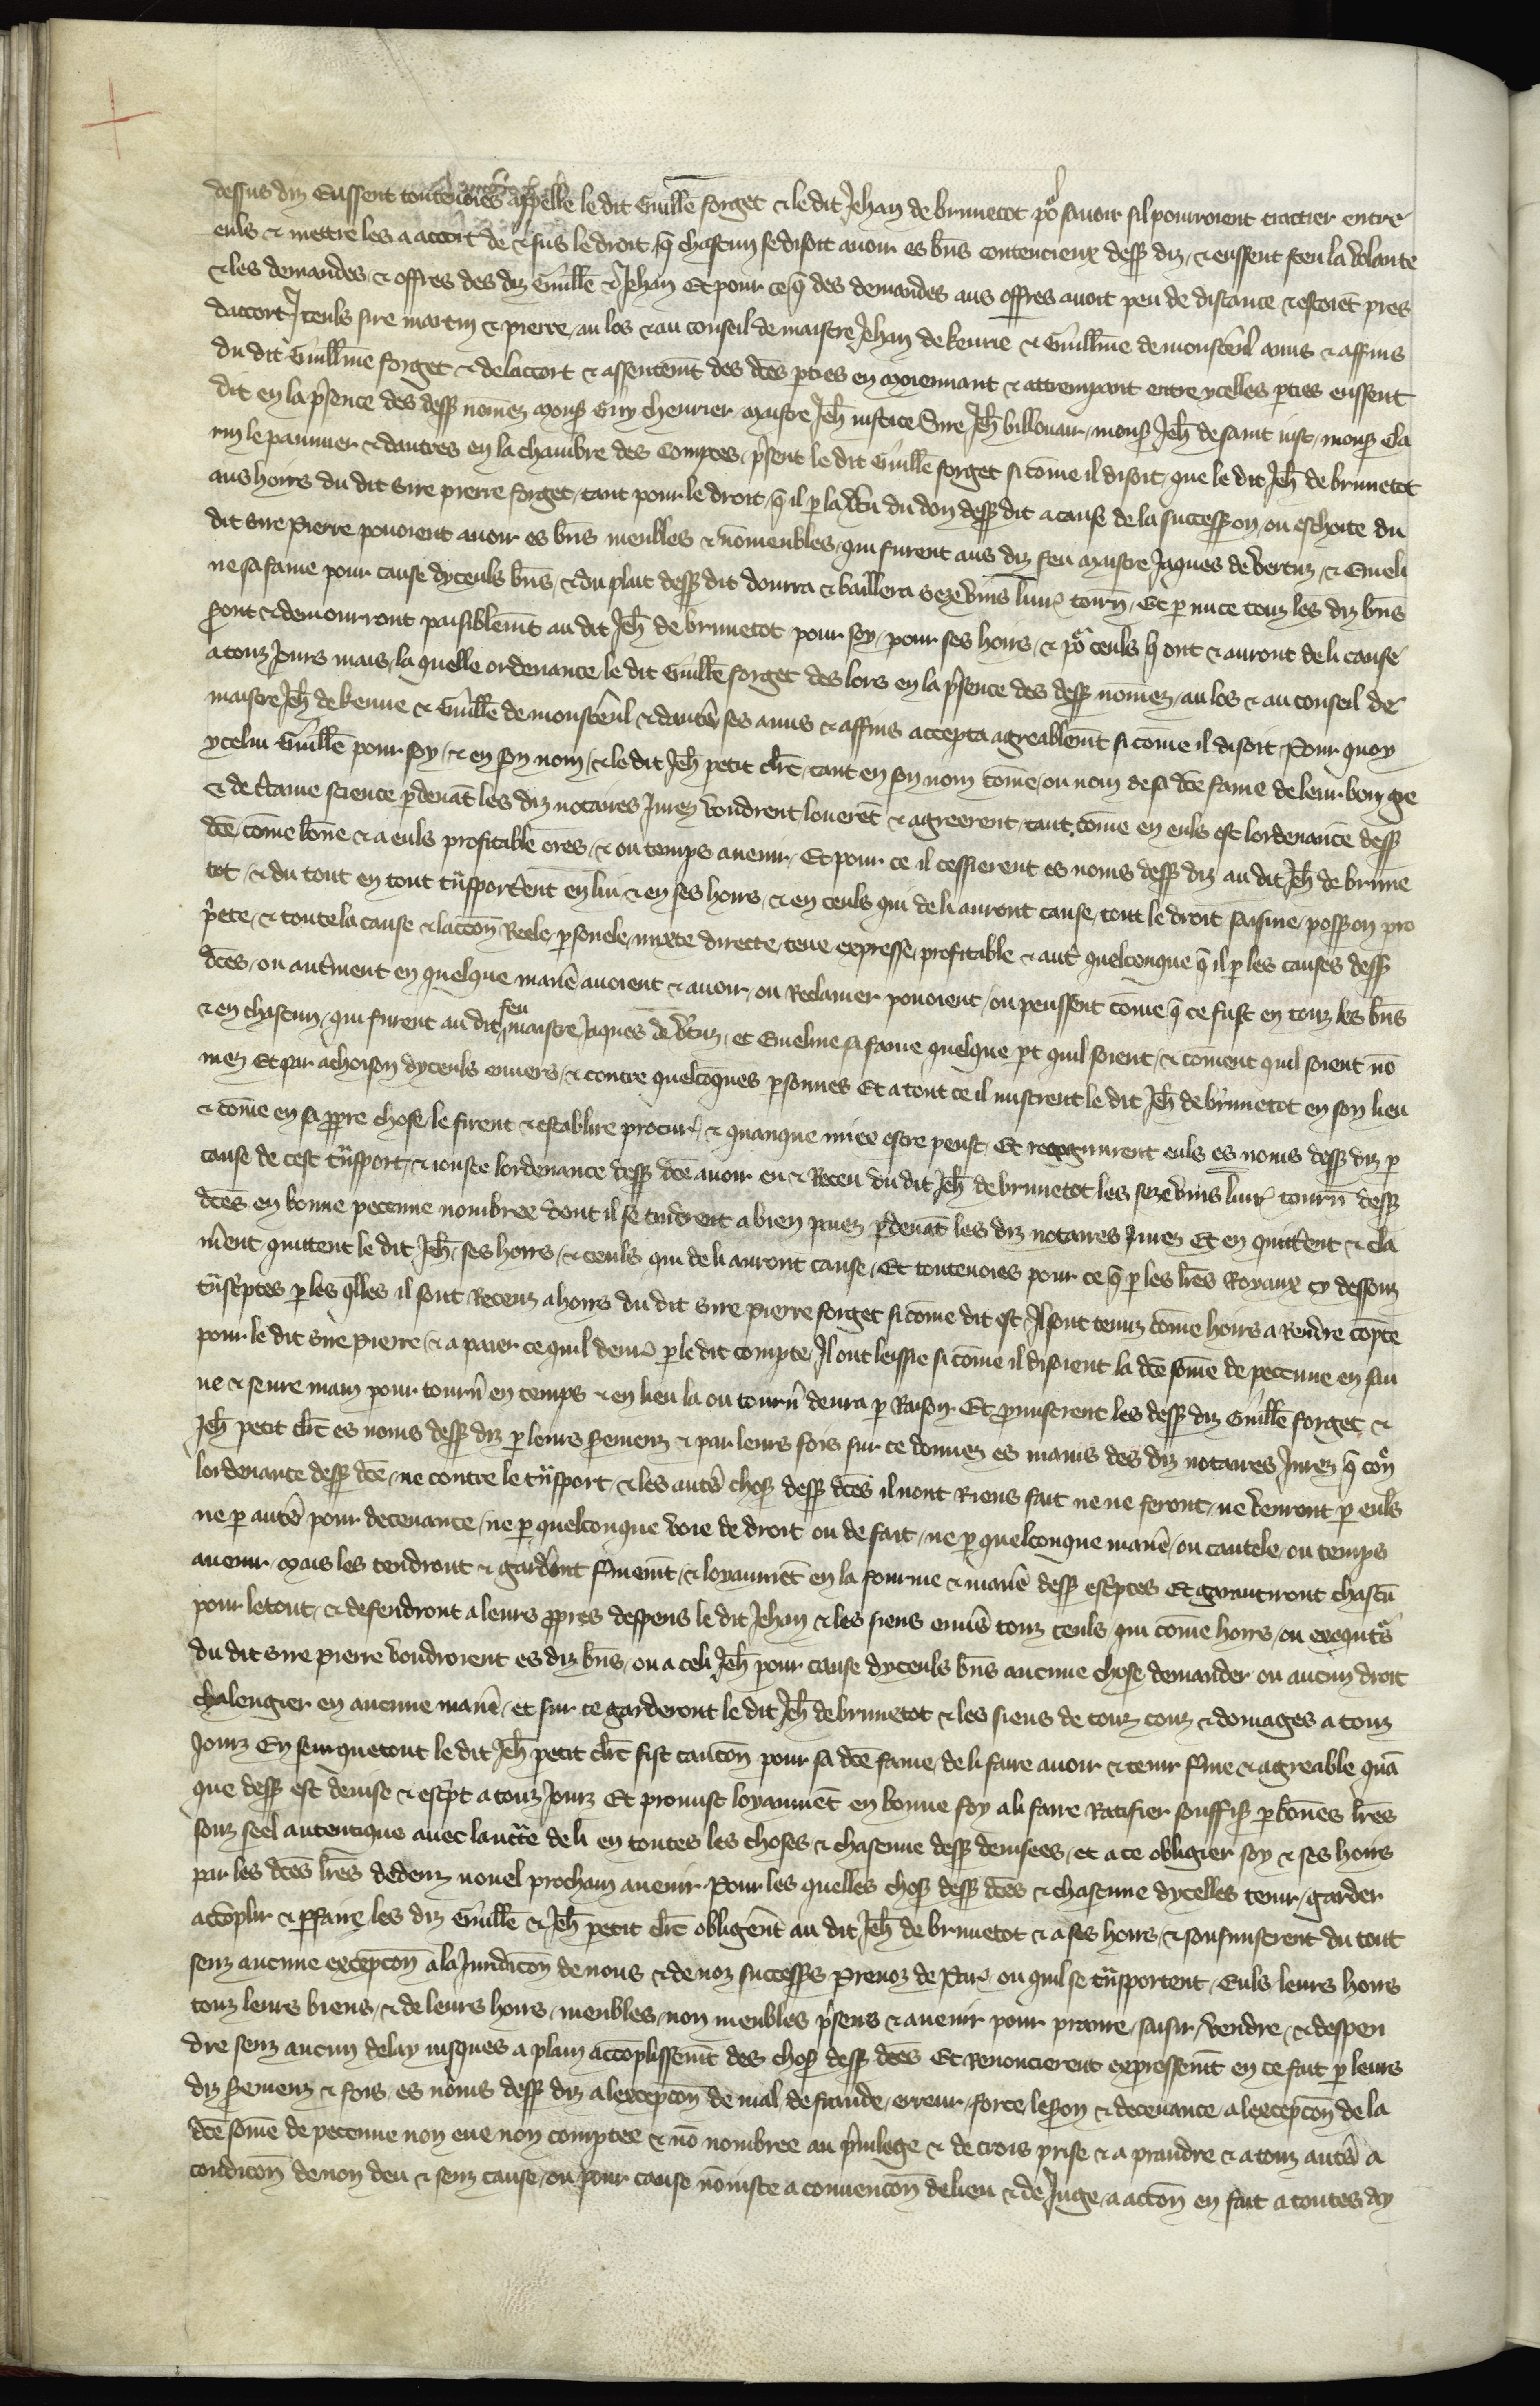 dessus diz Eussent toutevoies appelle le dit Guill̄e forget & le dit Jehan de brunetot po᷒ savoir sil pourroient traitier entre
euls & mettre les a accort de & sus le droit q̄ chascun se disoit avoir es b̄ns contencieux dess᷒ diz, & eussent sceu la volante
& les demandes & offres des diz Guill̄e & Jehan Et pour ce q̄ des demandes aus offres avoit peu de distance & estoiēt pres
daccort Iceuls sire martin & pierre, au los & au conseil de maistre Jehan de kerrie & Guill̄me de monsteruil amis & affins
du dit Guill̄me forget & de laccort & assentemt des dc̄es pties en moiennant & attrempant entre ycelles pties eussent
dit en la p̄sence des dess᷒ nōmez mons᷒ Guy chevrier maistre Jeh̄ iustice Sire Jeh̄ billouart, mons᷒ Jeh̄ de saint iust, mons᷒ Cla
rin le paumier & dautres en la chambre des Comptes, p̄sent le dit Guill̄e forget si cōme il disoit, que le dit Jeh̄ de brunetot
aus hoirs du dit sire pierre forget, tant pour le droit, q̄ il p la vtu du don dess᷒ dit a cause de la success᷒on, ou eschoite du
dit sire Pierre povoient avoir es b̄ns meubles & nōmeubles, qui furent aus diz feu maistre Jaques de Vertuz, & Emeli
ne sa fame pour cause dyceuls b̄ns, & du plait dess᷒ dit donra & baillera sezevins livr᷒ tourñ, Et p mi ce touz les diz b̄ns
sont & demourront paisiblemt au dit Jeh̄ de brunetot pour soy, pour ses hoirs, & po᷒ ceuls q̄ ont & auront de li cause
a touz Jours mais, la quelle ordenance, le dit Guill̄e forget des lors en la p̄sence des dess᷒ nomez, au los & au conseil de
maistre Jeh̄ de kerrie & Guill̄e de monsteruil & dautres ses amis & affins accepta agreablemt si cōme il disoit Pour quoy
ycelui Guill̄e pour soy, & en son nom, & le dit Jeh̄ petit clrc̄, tant en son nom cōme, ou nom de sa dc̄e fame de leur bon gre
& de ctaine science pdevāt les diz notaires Jurez voudrent louerēt & agreerent, tant cōme en euls est lordenance dess᷒
dc̄e, cōme bōne & a euls profitable ores, & ou temps avenir, Et pour ce il cessierent es noms dess᷒ diz au dit Jeh̄ de brune
tot, & du tout en tout tn̄sporterent en lui & en ses hoirs, & en ceuls qui de li auront cause, tout le droit saisine, poss᷒on pro
p̄ete, & toute la cause & lacc̄on Reele, psonele, mixte directe, teue expresse, profitable & aut̄ quelconque q̄ il p les causes dess᷒
dc̄es, ou aut̄ment en quelque manie avoient & avoir, ou Reclamer povoient, ou peussent cōme q̄ ce fust en touz les b̄ns
& en chascun, qui furent au dit feu maistre Jaques de Vertuz, et Emeline sa fame quelque pt quil soient, & cōment quil soient nō
mez Et par achoison dyceuls envers, & contre quelcōques psonnes Et a tout ce il mistrent le dit Jeh̄ de brunetot en son lieu
& cōme en sa ppre chose, le firent & establirē procur᷒ & quanque miex estre peust, Et recognurent euls es noms dess᷒ diz p
cause de cest tn̄sport, & iouste lordenance dess᷒ dc̄e avoir eu & Receu du dit Jeh̄ de brunetot les sezevins livr᷒ tourñ dess᷒
dc̄es en bonne peccune nombree dont il se tindrent a bien paiez pdevāt les diz notaires Jurez Et en quitterent & cla
merent quittent le dit Jeh̄, ses hoirs, & ceuls qui de li auront cause, Et toutevoies pour ce q̄ p les lr̄es Royaux cy dessouz
tn̄scptes p les q̄lles il sont Receuz a hoirs du dit sire Pierre forget si cōme dit est, Il sont tenuz cōme hoirs a Rendre cōpte
pour le dit sire pierre, & a paier ce quil devr᷒ p le dit compte, Il ont lessie si cōme il disoient la dc̄e sōme de peccune en sau
ve & seure main pour tourñ en temps & en lieu la ou tourñ devra p Raison Et promistrent les dess᷒ diz Guill̄e forget &
Jeh̄ petit clrc̄ es noms dess᷒ diz p leurs seremens & par leurs fois sur ce donnez es mains des diz notaires Jurez q̄ cont᷒
lordenance dess᷒ dc̄e, ne contre le tn̄sport, & les autes chos᷒ dess᷒ dc̄es il nont Riens fait ne ne feront, ne venront p euls
ne p autes pour decevance, ne p quelconque voie de droit ou de fait, ne p quelconque manie, ou cautele, ou temps
avenir, mais les tendront & garderont fmemt, & loyaumēt en la fourme & manie dess᷒ esc̄ptes Et garantiront chascū
pour le tout, & defendront a leurs ppres despens le dit Jehan & les siens envers touz ceuls, qui cōme hoirs, ou exequt᷒
du dit sire pierre vouldroient es diz b̄ns, ou a celi Jeh̄ pour cause dyceuls b̄ns aucune chose demander ou aucun droit
chalengier en aucune manie, et sur ce garderont le dit Jeh̄ de brunetot & les siens de touz couz & domages a touz
Jourz En seurquetout le dit Jeh̄ petit clrc̄ fist cauc̄on pour sa dc̄e fame, de li faire avoir & tenir fme & agreable quā
que dess᷒ est devise & esc̄pt a touz Jourz Et promist loyaumēt en bonne foy a li faire Ratifier souffis᷒ p bōnes lr̄es
souz seel autentique avec lauct̄te de li en toutes les choses & chascune dess᷒ devisees, et a ce obligier soy & ses hoirs
par les dc̄es lr̄es dedenz nouel prochain avenir Pour les quelles chos᷒ dess᷒ dc̄es & chascune dycelles tenir, garder
accōplir & pfaire, les diz Guill̄e & Jeh̄ petit clrc̄ obligerent au dit Jeh̄ de brunetot & a ses hoirs, & sousmistrent du tout
senz aucune excepc̄on a la Juridic̄on de nous & de noz successrs Prevoz de Par᷒ ou quil se tn̄sportent, Euls leurs hoirs
touz leurs biens, & de leurs hoirs, meubles, non meubles p̄sens & avenir pour prenre, saisir, vendre, & despen
dre senz aucun delay iusques a plain accōplissemt des chos᷒ dess᷒ dc̄es Et Renoncierent expressemt en ce fait p leurs
diz Seremenz & fois, es noms dess᷒ diz a lexcepc̄on de mal, de fraude, erreur, force, leson & decevance, a lexcepc̄on de la
dc̄e sōme de peccune non eue non comptee & nō nombree au p̄vilege & de crois prise & a prandre & a touz autes a
condic̄on de non deu & senz cause, ou pour cause nōiuste a convenc̄on de lieu & de Juge, a acc̄on en fait a toutes ay